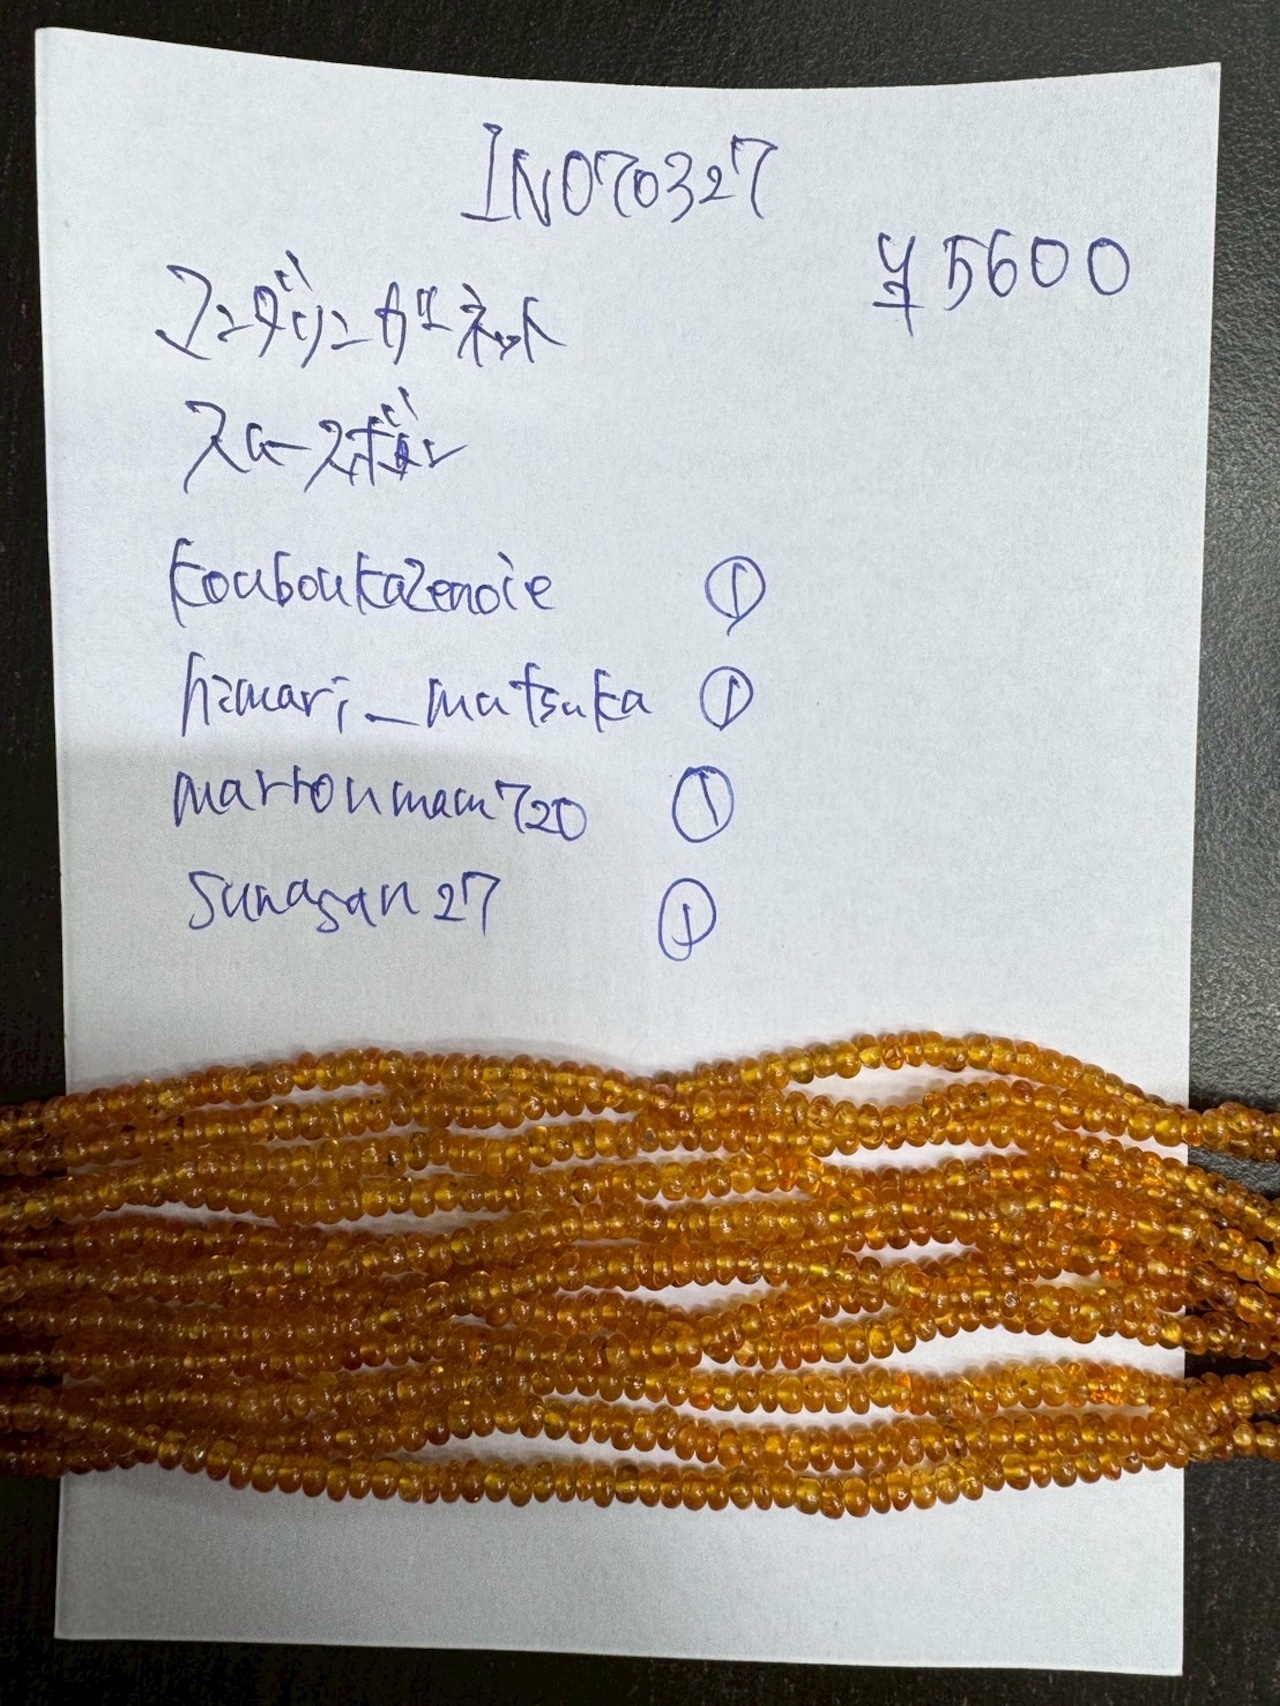 INO70327
¥5600
マンダリンガーネット
スムースボタン
kouboukazenoie ①
himari_matsuka ①
marronmam720 ①
sunasan27 ①